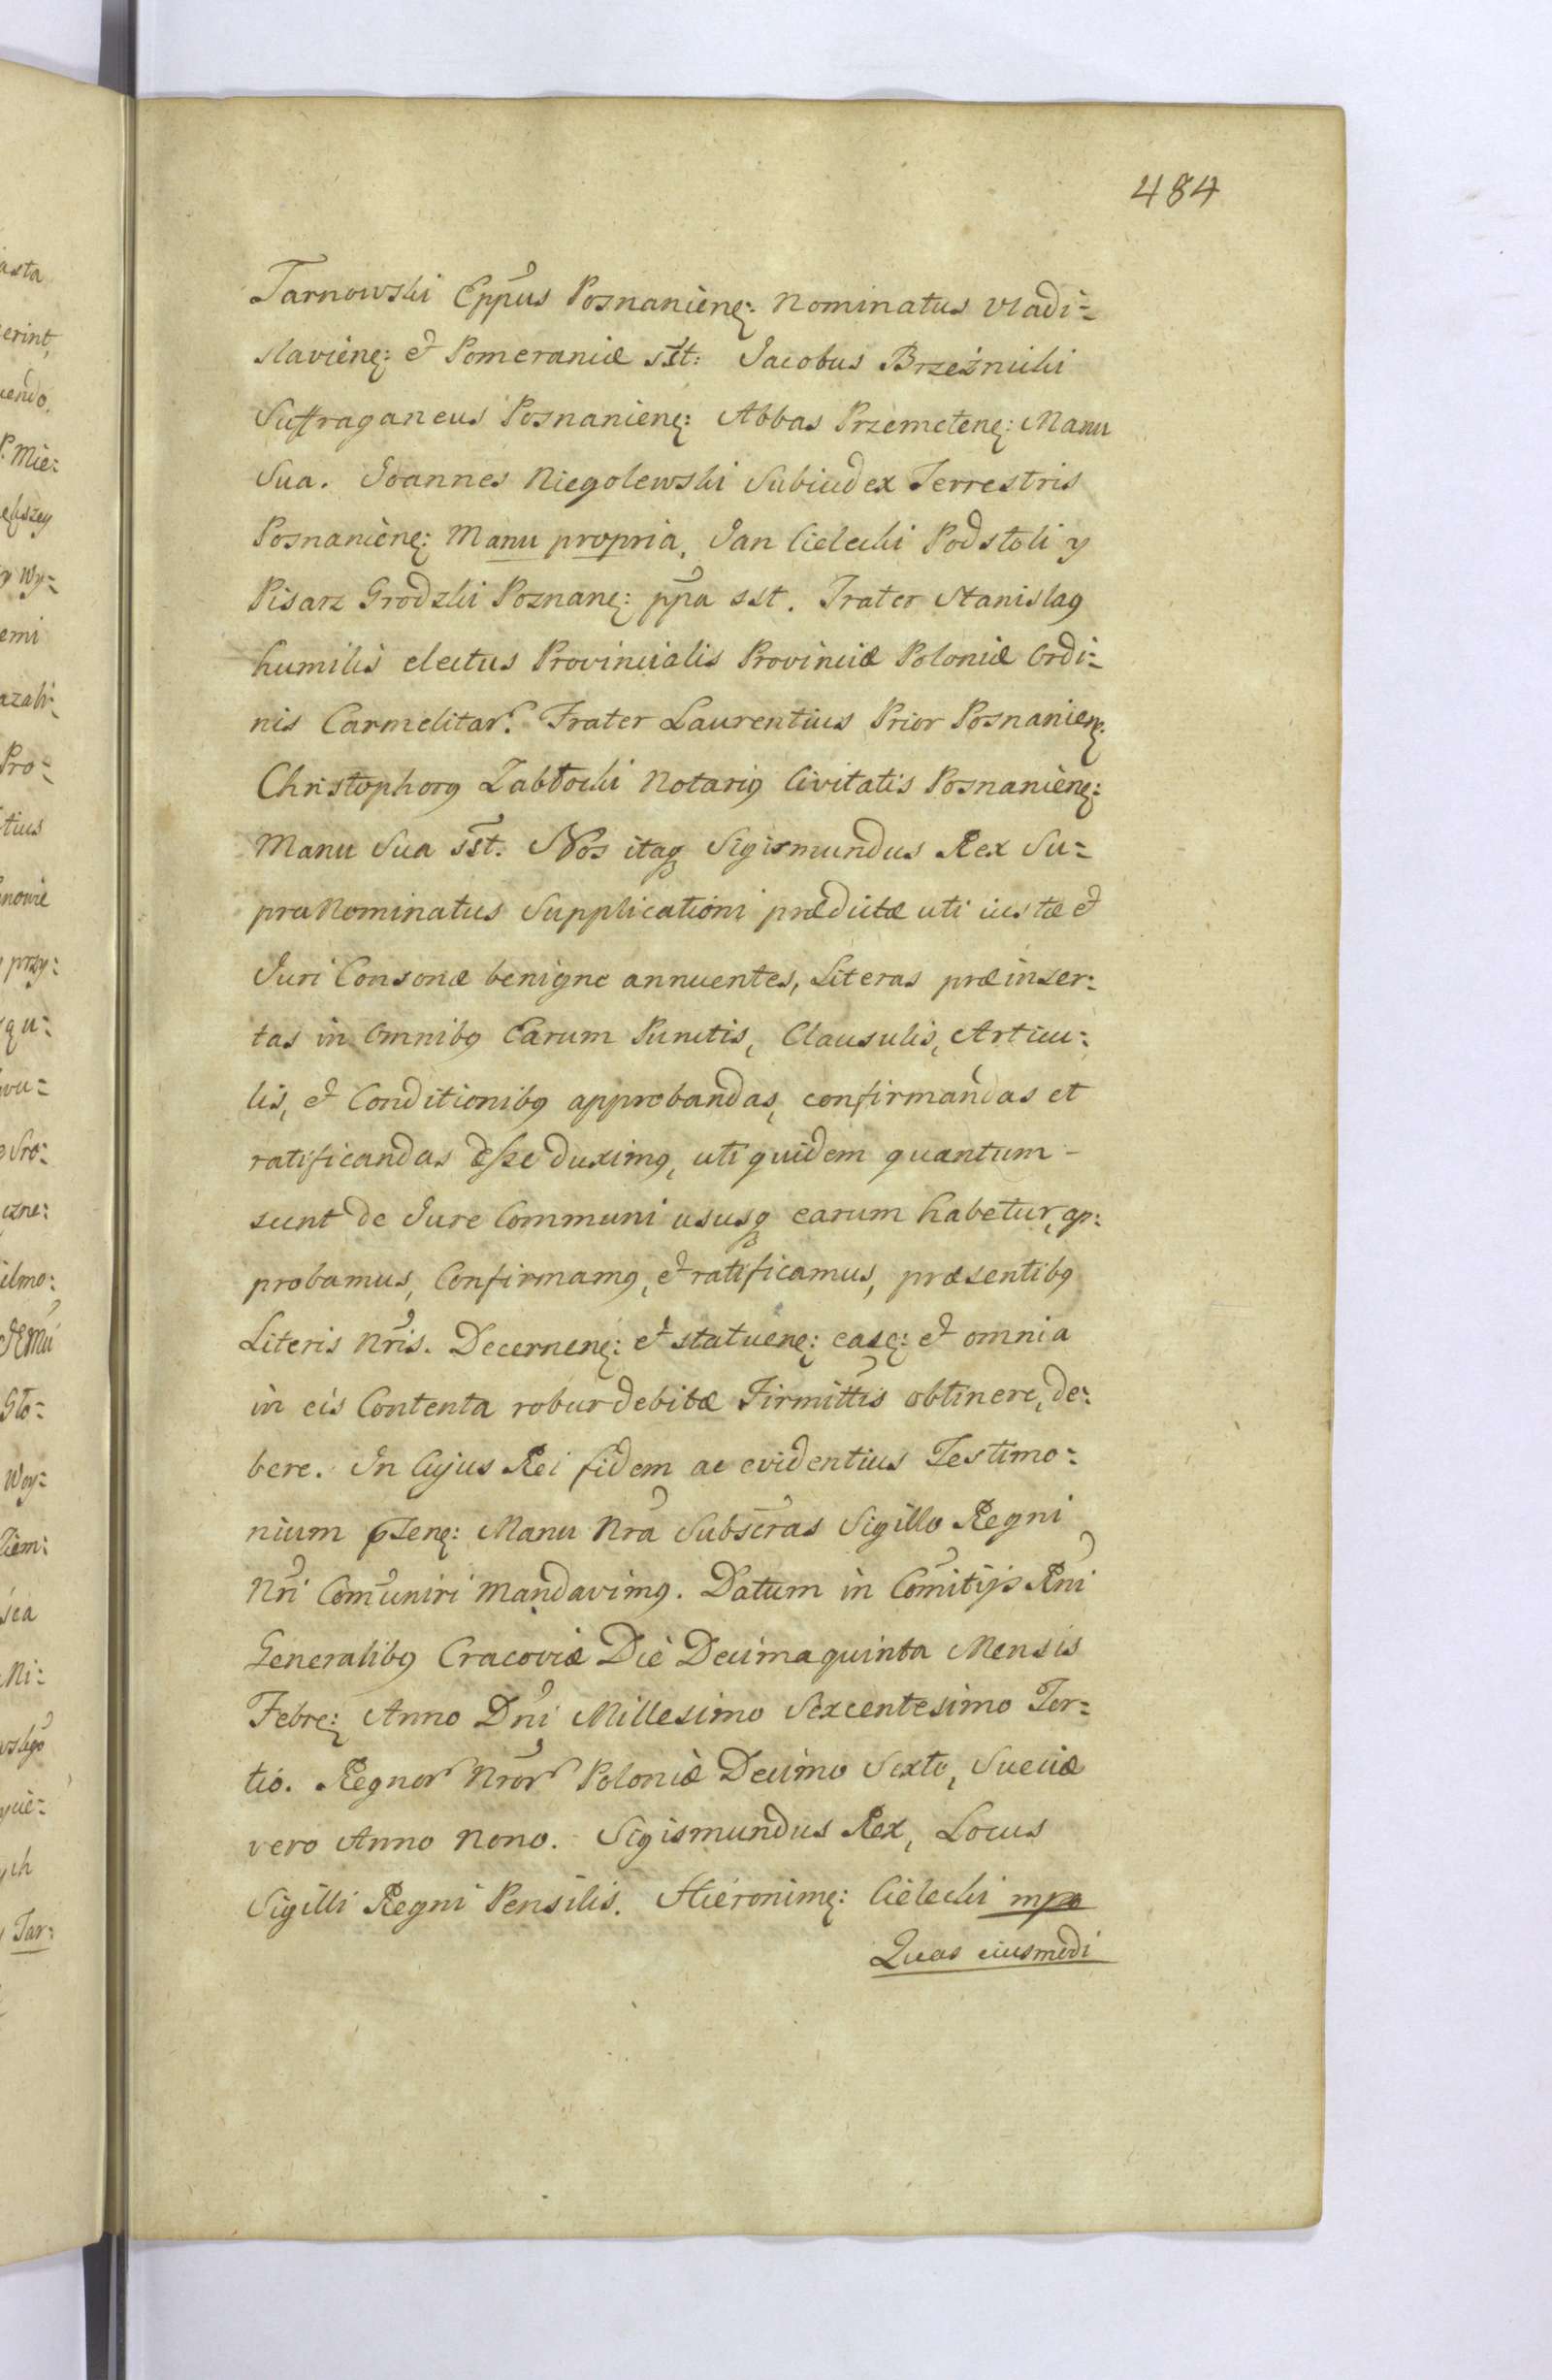 484
Tarnowski Eppus Posnanienę: Nominatus Vladi=
slavienę: et Pomeraniæ sst: Jacobus Brzeźnicki
Suffraganeus Posnanienę: Abbas Przemetenę: Manu
Sua. Joannes Niegolewski Subiudex Terrestris
Posnanienę: Manu propria, Jan Cielecki Podstoli y
Pisarz Grodzki Poznanę: ppa sst. Frater Stanislaꝯ
humilis electus Provincialis Provinciæ Poloniæ Ordi=
nis Carmelitar. Frater Laurentius Prior Posnanienę:
Christophorꝯ Zabłocki Notariꝯ Civitatis Posnanienę:
Manu Sua sst. Nos itaqꝫ Sigismundus Rex Su=
pra Nominatus Supplicationi prædictæ uti iustæ et
Juri Consonæ benigne annuentes, Literas præinser:
tas in Omnibꝯ Earum Punctis, Clausulis, Articu:
lis, et Conditionibꝯ approbandas, confirmandas et
ratificandas esse duximꝯ, uti quidem quantum -
sunt de Jure Communi ususqꝫ earum habetur, ap:
probamus, Confirmamꝯ, et ratificamus, præsentibꝯ
Literis Nris. Decernenę: et statuenę: easę: et omnia
in eis Contenta robur debitæ Firmittis obtinere, de:
bere. In Cujus Rei fidem ac evidentius Testimo:
nium pñtenę: Manu Nra Subscras Sigillo Regni
Nri Comuniri Mandavimꝯ. Datum in Comitijs Rni
Generalibꝯ Cracoviæ Die Decima quinta Mensis
Febrę: Anno Dni Millesimo Sexcentesimo Ter=
tio. Regnor Nror Poloniæ Decimo Sexto, Sueciæ
vero Anno Nono. Sigismundus Rex, Locus
Sigilli Regni Pensilis. Hieronimę: Cielecki mpa
Quas eiusmodi